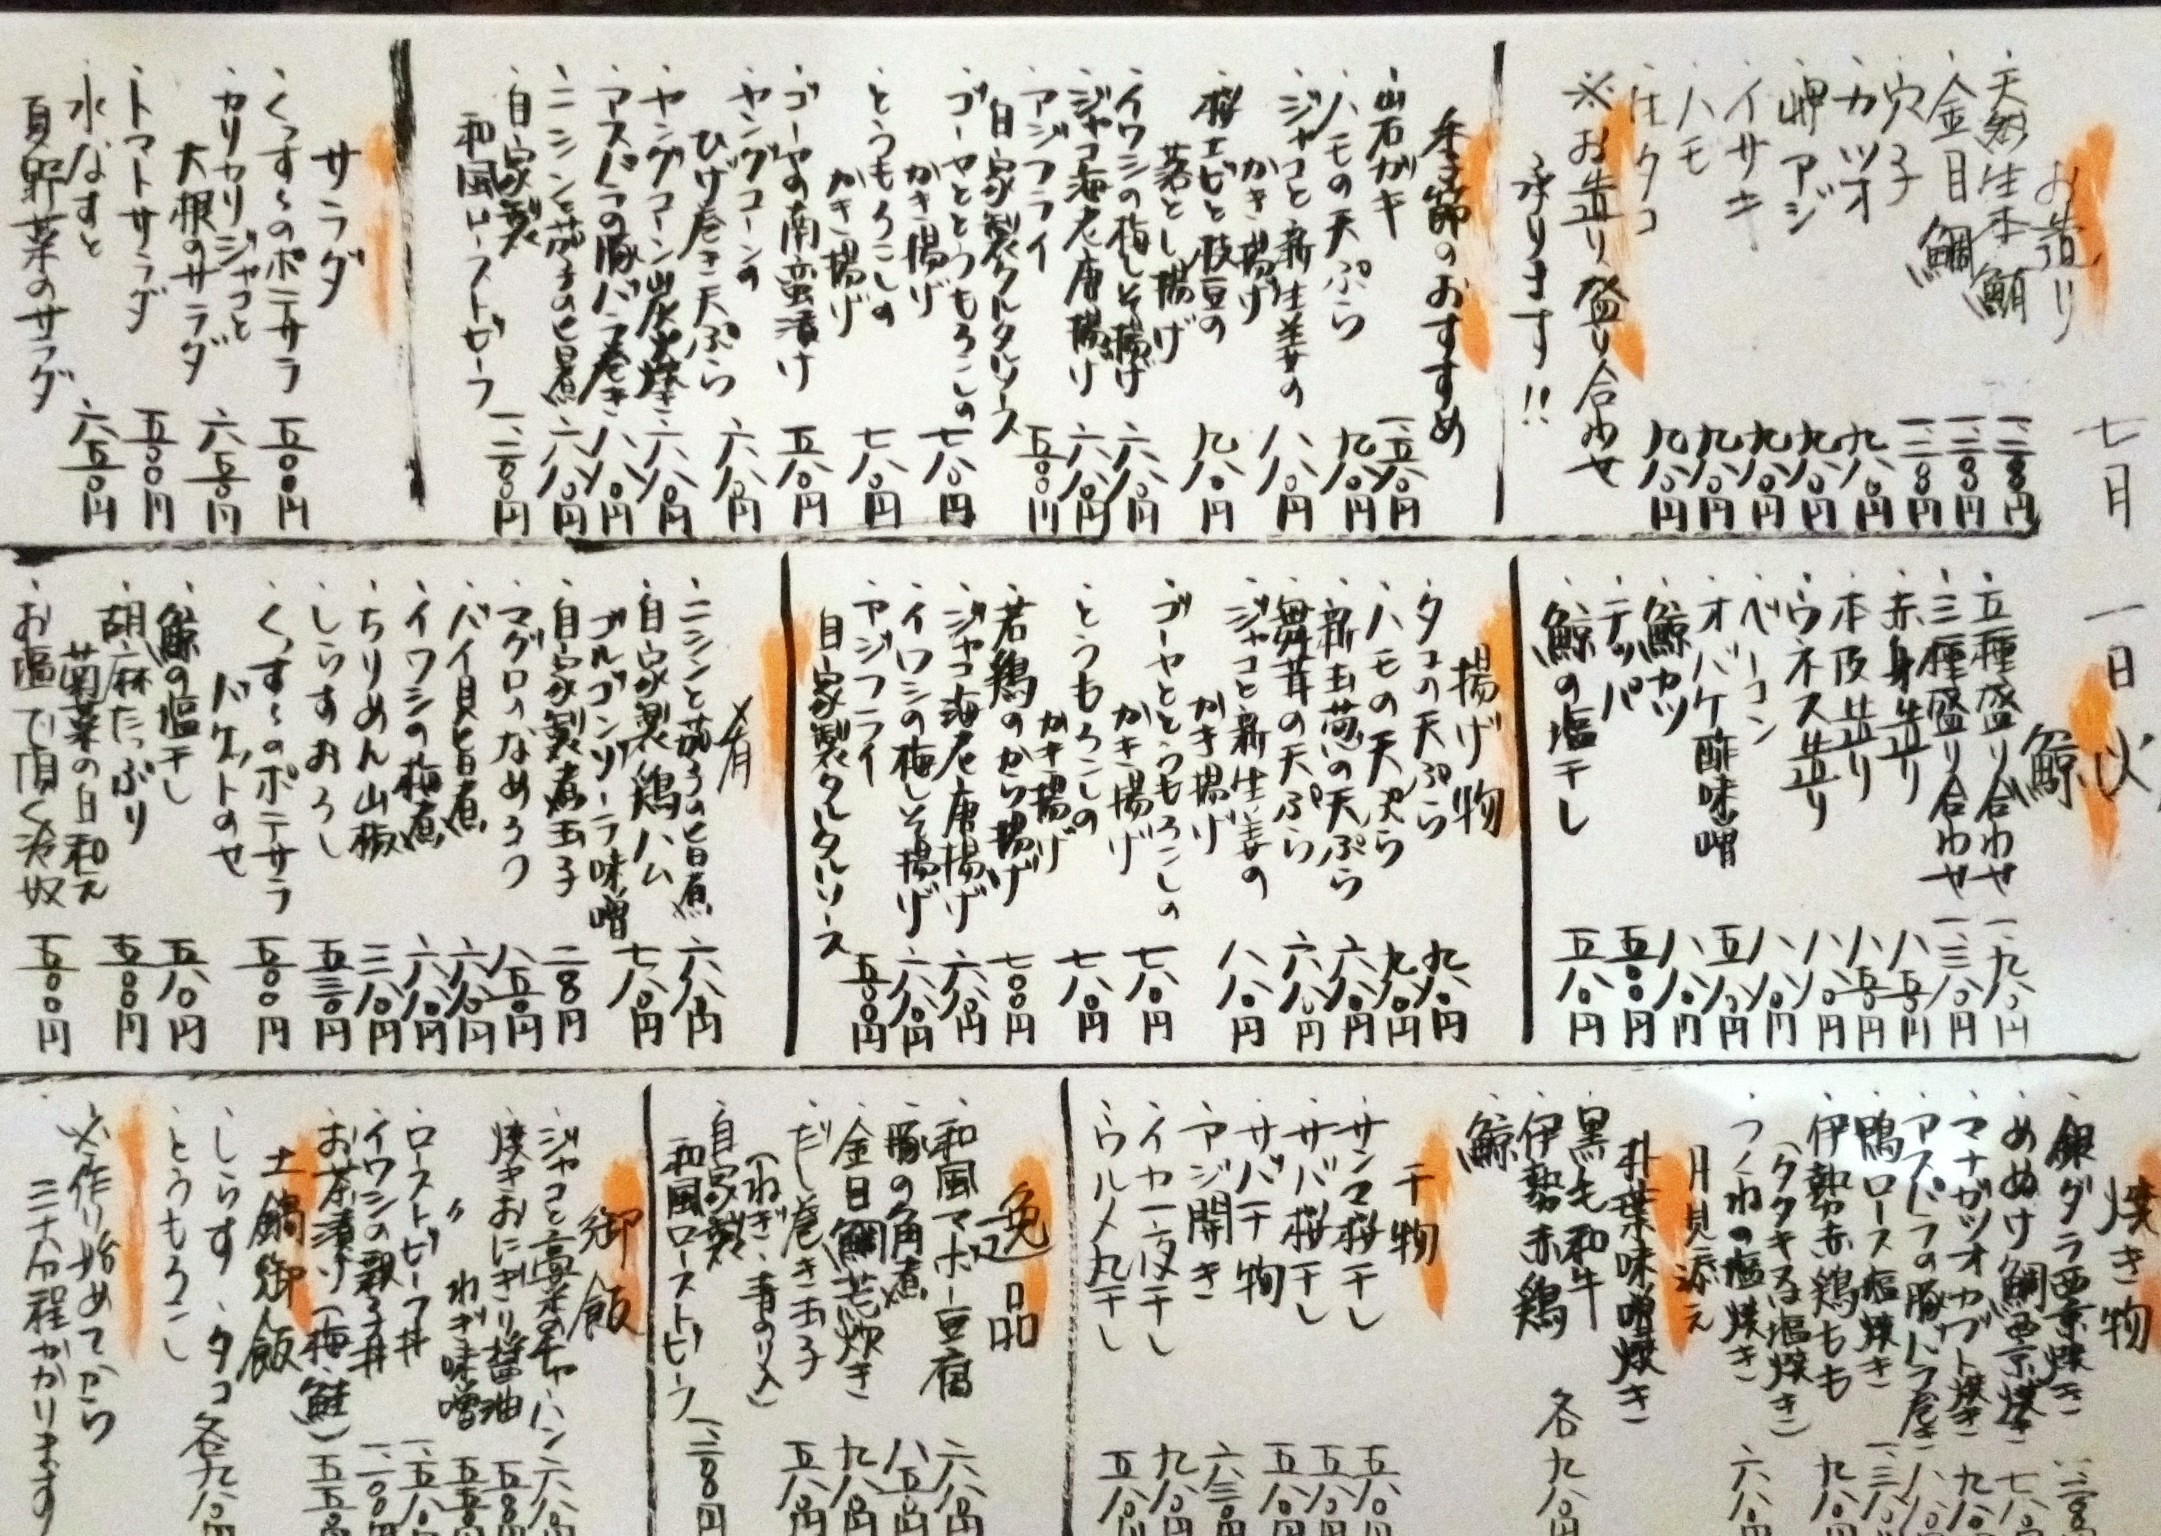 七月
一日
火
お造り
、天然生本鮪 一、二八〇円
、金目鯛 一、二八〇円
、穴子 一、二八〇円
、カツオ 九八〇円
、岬アジ 九八〇円
、イサキ 九八〇円
、ハモ 九八〇円
、圡タコ 九八〇円
※お造り盛り合わせ
承ります!!
季節のおすすめ
、岩ガキ 一、五八〇円
、ハモの天ぷら 九八〇円
、ジャコと新生姜の
かき揚げ 八八〇円
、桜エビと枝豆の
落とし揚げ 九八〇円
、イワシの梅しそ揚げ 六八〇円
、ジャコ海老唐揚げ 六八〇円
、アジフライ
自家製タルタルソース 五八〇円
、ゴーヤととうもろこしの
かき揚げ 七八〇円
、とうもろこしの
かき揚げ 七八〇円
、ゴーヤの南蛮漬け 五八〇円
、ヤングコーンの
ひげ巻き天ぷら 六八〇円
、ヤングコーン炭火焼き 六八〇円
、アスパラの豚バラ巻き 八八〇円
、ニシンと茄子の旨煮 六八〇円
、自家製
和風ローストビーフ 一、二八〇円
サラダ
、くっす〜のポテサラ 五〇〇円
、カリカリジャコと
大根のサラダ 六五〇円
、トマトサラダ 五〇〇円
、水なすと
夏野菜のサラダ 六五〇円
鯨
、五種盛り合わせ 一、九八〇円
、三種盛り合わせ 一、三八〇円
、赤身造り 八五〇円
、本皮造り 八五〇円
、ウネス造り 八八〇円
、ベーコン 八八〇円
、オバケ酢味噌 五八〇円
、鯨カツ 八八〇円
、テッパ 五八〇円
、鯨の塩干し 五八〇円
揚げ物
、タコの天ぷら 九八〇円
、ハモの天ぷら 九八〇円
、新玉葱の天ぷら 六八〇円
、舞茸の天ぷら 六八〇円
、ジャコと新生姜の
かき揚げ 八八〇円
、ゴーヤととうもろこしの
かき揚げ 七八〇円
、とうもろこしの
かき揚げ 七八〇円
、若鶏のから揚げ 七〇〇円
、ジャコ海老唐揚げ 六八〇円
、イワシの梅しそ揚げ 六八〇円
、アジフライ
自家製タルタルソース 五八〇円
肴
、ニシンと茄子の旨煮 六八〇円
、自家製鶏ハム
ゴルゴンゾーラ味噌 七八〇円
、自家製煮玉子 二八〇円
、マグロのなめろう 八五〇円
、バイ貝旨煮 六八〇円
、イワシの梅煮 六八〇円
、ちりめん山椒 三八〇円
、しらすおろし 五三〇円
、くっす〜のポテサラ
バゲットのせ 五〇〇円
、鯨の塩干し 五八〇円
、胡麻たっぷり
菊菜の白和え 五〇〇円
、お塩で頂く冷奴 五〇〇円
焼き物
、銀ダラ西京焼き 一、二八〇
、めぬけ鯛西京焼き 七八〇
、マナガツオカブト焼き 九八〇
、アスパラの豚バラ巻き 八八〇
、鴨ロース塩焼き 一、三八〇
、伊勢赤鶏もも
(タタキ又は塩焼き) 九八〇円
、つくねの塩焼き
月見添え 六八〇
朴葉味噌焼き
、黒毛和牛
、伊勢赤鶏
、鯨 各九八〇円
干物
、サンマ桜干し 五八〇円
、サバ桜干し 五八〇円
、サバ干物 五八〇円
、アジ開き 六三〇円
、イカ一夜干し 九八〇円
、ウルメ丸干し 五八〇円
逸品
、和風マーボー豆腐 六八〇円
、豚の角煮 八五〇円
、金目鯛荒炊き 九八〇円
、だし巻き玉子
(ねぎ、青のり入) 五八〇円
、自家製
和風ローストビーフ 一、二八〇円
御飯
、ジャコと高菜のチャーハン 六八〇円
、焼きおにぎり醤油 五五〇円
、〃 ねぎ味噌 五五〇円
、ローストビーフ丼 一、五八〇円
、イワシの親子丼 一、一〇〇円
、お茶漬け(梅、鮭) 五五〇円
土鍋御飯
、しらす、タコ
、とうもろこし 各九八〇円
※作り始めてから
三十分程かかります